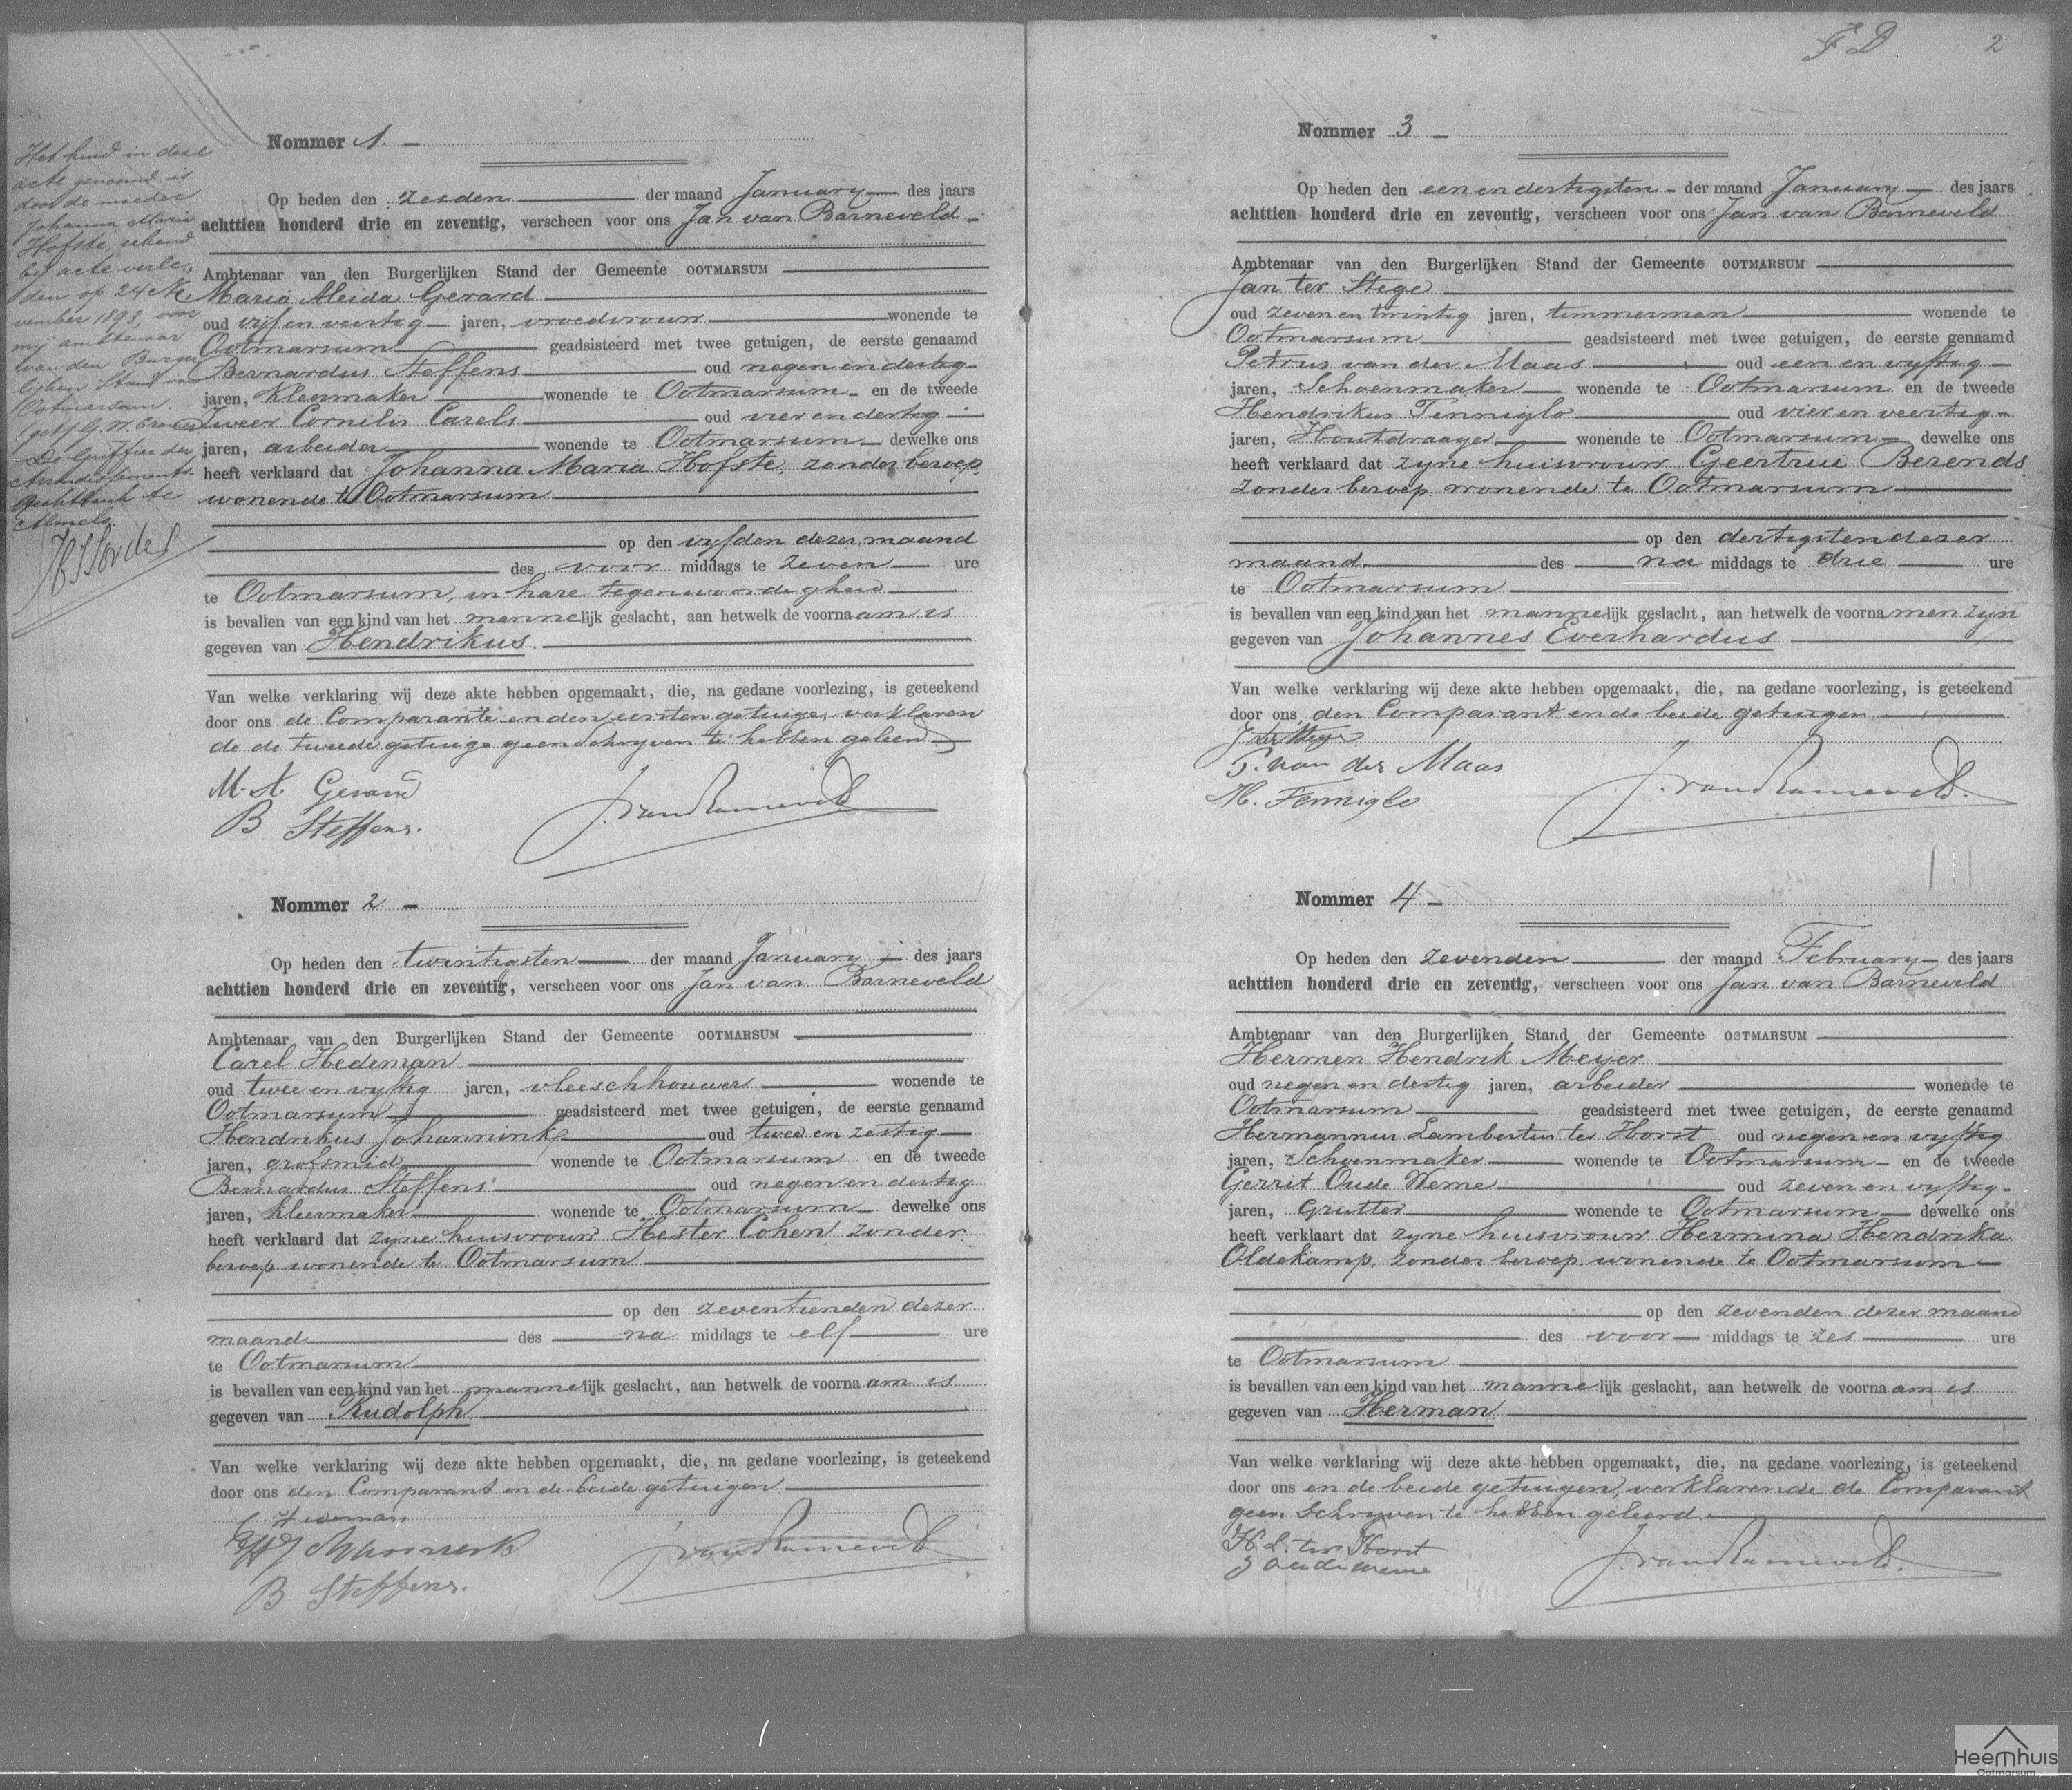 Het kind in deze
acte genoemd is
door de moeder
Johanna Maria
Hofste, erkend
bij acte verle-
den op 24 No
vember 1893, voor
mij ambtenaar
van den Burger
lijken Stand van
Ootmarsum.
(get) G. W.
De Griffier der
Arrondissements
Rechtbank te
Almelo.
Nommer 1. -
Op heden den zesden der maand January des jaars
achttien honderd drie en zeventig, verscheen voor ons Jan van Barneveld
Ambtenaar van den Burgerlijken Stand der Gemeente OOTMARSUM
Maria Aleida Gerard
oud vijf en veertig jaren, vroedvrouw wonende te
Ootmarsum geadsisteerd met twee getuigen, de eerste genaamd
Bernardus Steffens oud negen en dertig
jaren, kleermaker wonende te Ootmarsum en de tweede
Zweer Cornelis Carels oud vier en dertig
jaren, arbeider wonende te Ootmarsum dewelke ons
heeft verklaard dat Johanna Maria Hofste, zonder beroep,
wonende te Ootmarsum
op den vyfden dezer maand
des voor middags te zeven ure
te Ootmarsum, in hare tegenwoordigheid
is bevallen van een kind van het mannelijk geslacht, aan hetwelk de voornaam is
gegeven van Hendrikus
Van welke verklaring wij deze akte hebben opgemaakt, die, na gedane voorlezing, is geteekend
door ons de Comparante en den eersten getuige, verklaren
de de tweede getuige geen Schryven te hebben geleerd
M. A. Gerard
B Steffens.
J. van Barneveld
Nommer 2 -
Op heden den twintigsten der maand January des jaars
achttien honderd drie en zeventig, verscheen voor ons Jan van Barneveld
Ambtenaar van den Burgerlijken Stand der Gemeente OOTMARSUM
Carel Hedeman
oud twee en vyftig jaren, vleeschhouwer wonende te
Ootmarsum geadsisteerd met twee getuigen, de eerste genaamd
Hendrikus Johannink oud twee en zestig
jaren, grofsmid wonende te Ootmarsum en de tweede
Bernardus Steffens oud negen en dertig
jaren, kleermaker wonende te Ootmarsum dewelke ons
heeft verklaard dat zyne huisvrouw Hester Cohen zonder
beroep wonende te Ootmarsum
op den zeventienden dezer
maand des na middags te elf ure
te Ootmarsum
is bevallen van een kind van het mannelijk geslacht, aan hetwelk de voornaam is
gegeven van Rudolph
Van welke verklaring wij deze akte hebben opgemaakt, die, na gedane voorlezing, is geteekend
door ons den Comparant en de beide getuigen
C Hedeman
B Steffens.
J. van Barneveld
F D 2
Nommer 3 -
Op heden den een en dertigsten der maand January des jaars
achttien honderd drie en zeventig, verscheen voor ons Jan van Barneveld
Ambtenaar van den Burgerlijken Stand der Gemeente OOTMARSUM
Jan ter Stege
oud zeven en twintig jaren, timmerman wonende te
Ootmarsum geadsisteerd met twee getuigen, de eerste genaamd
Petrus van der Maas oud een en vyftig
jaren, Schoenmaker wonende te Ootmarsum en de tweede
Hendrikus Tenniglo oud vier en veertig
jaren, Houtdraayer wonende te Ootmarsum dewelke ons
heeft verklaard dat zyne huisvrouw Geertrui Berends
zonder beroep wonende te Ootmarsum
op den dertigsten dezer
maand des na middags te drie ure
te Ootmarsum
is bevallen van een kind van het mannelijk geslacht, aan hetwelk de voornamen zyn
gegeven van Johannes Everhardus
Van welke verklaring wij deze akte hebben opgemaakt, die, na gedane voorlezing, is geteekend
door ons, den Comparant en de beide getuigen
J ter Stege
P. van der Maas
H. Tenniglo
J. van Barneveld.
Nommer 4 -
Op heden den zevenden der maand February des jaars
achttien honderd drie en zeventig, verscheen voor ons Jan van Barneveld
Ambtenaar van den Burgerlijken Stand der Gemeente OOTMARSUM
Hermen Hendrik Meyer
oud negen en dertig jaren, arbeider wonende te
Ootmarsum geadsisteerd met twee getuigen, de eerste genaamd
Hermannus Lambertus ter Horst oud negen en vyftig
jaren, Schoenmaker wonende te Ootmarsum en de tweede
Gerrit Oude Weme oud zeven en vyftig
jaren, Grutter wonende te Ootmarsum dewelke ons
heeft verklaart dat zyne huisvrouw Hermina Hendrika
Oldekamp, zonder beroep wonende te Ootmarsum
op den zevenden dezer maand
des voor middags te zes ure
te Ootmarsum
is bevallen van een kind van het mannelijk geslacht, aan hetwelk de voornaam is
gegeven van Herman
Van welke verklaring wij deze akte hebben opgemaakt, die, na gedane voorlezing, is geteekend
door ons en de beide getuigen, verklarende de Comparant
geen Schryven te hebben geleerd.
H. L. ter Horst
G oude weme
J. van Barneveld.
Heemhuis
Ootmarsum